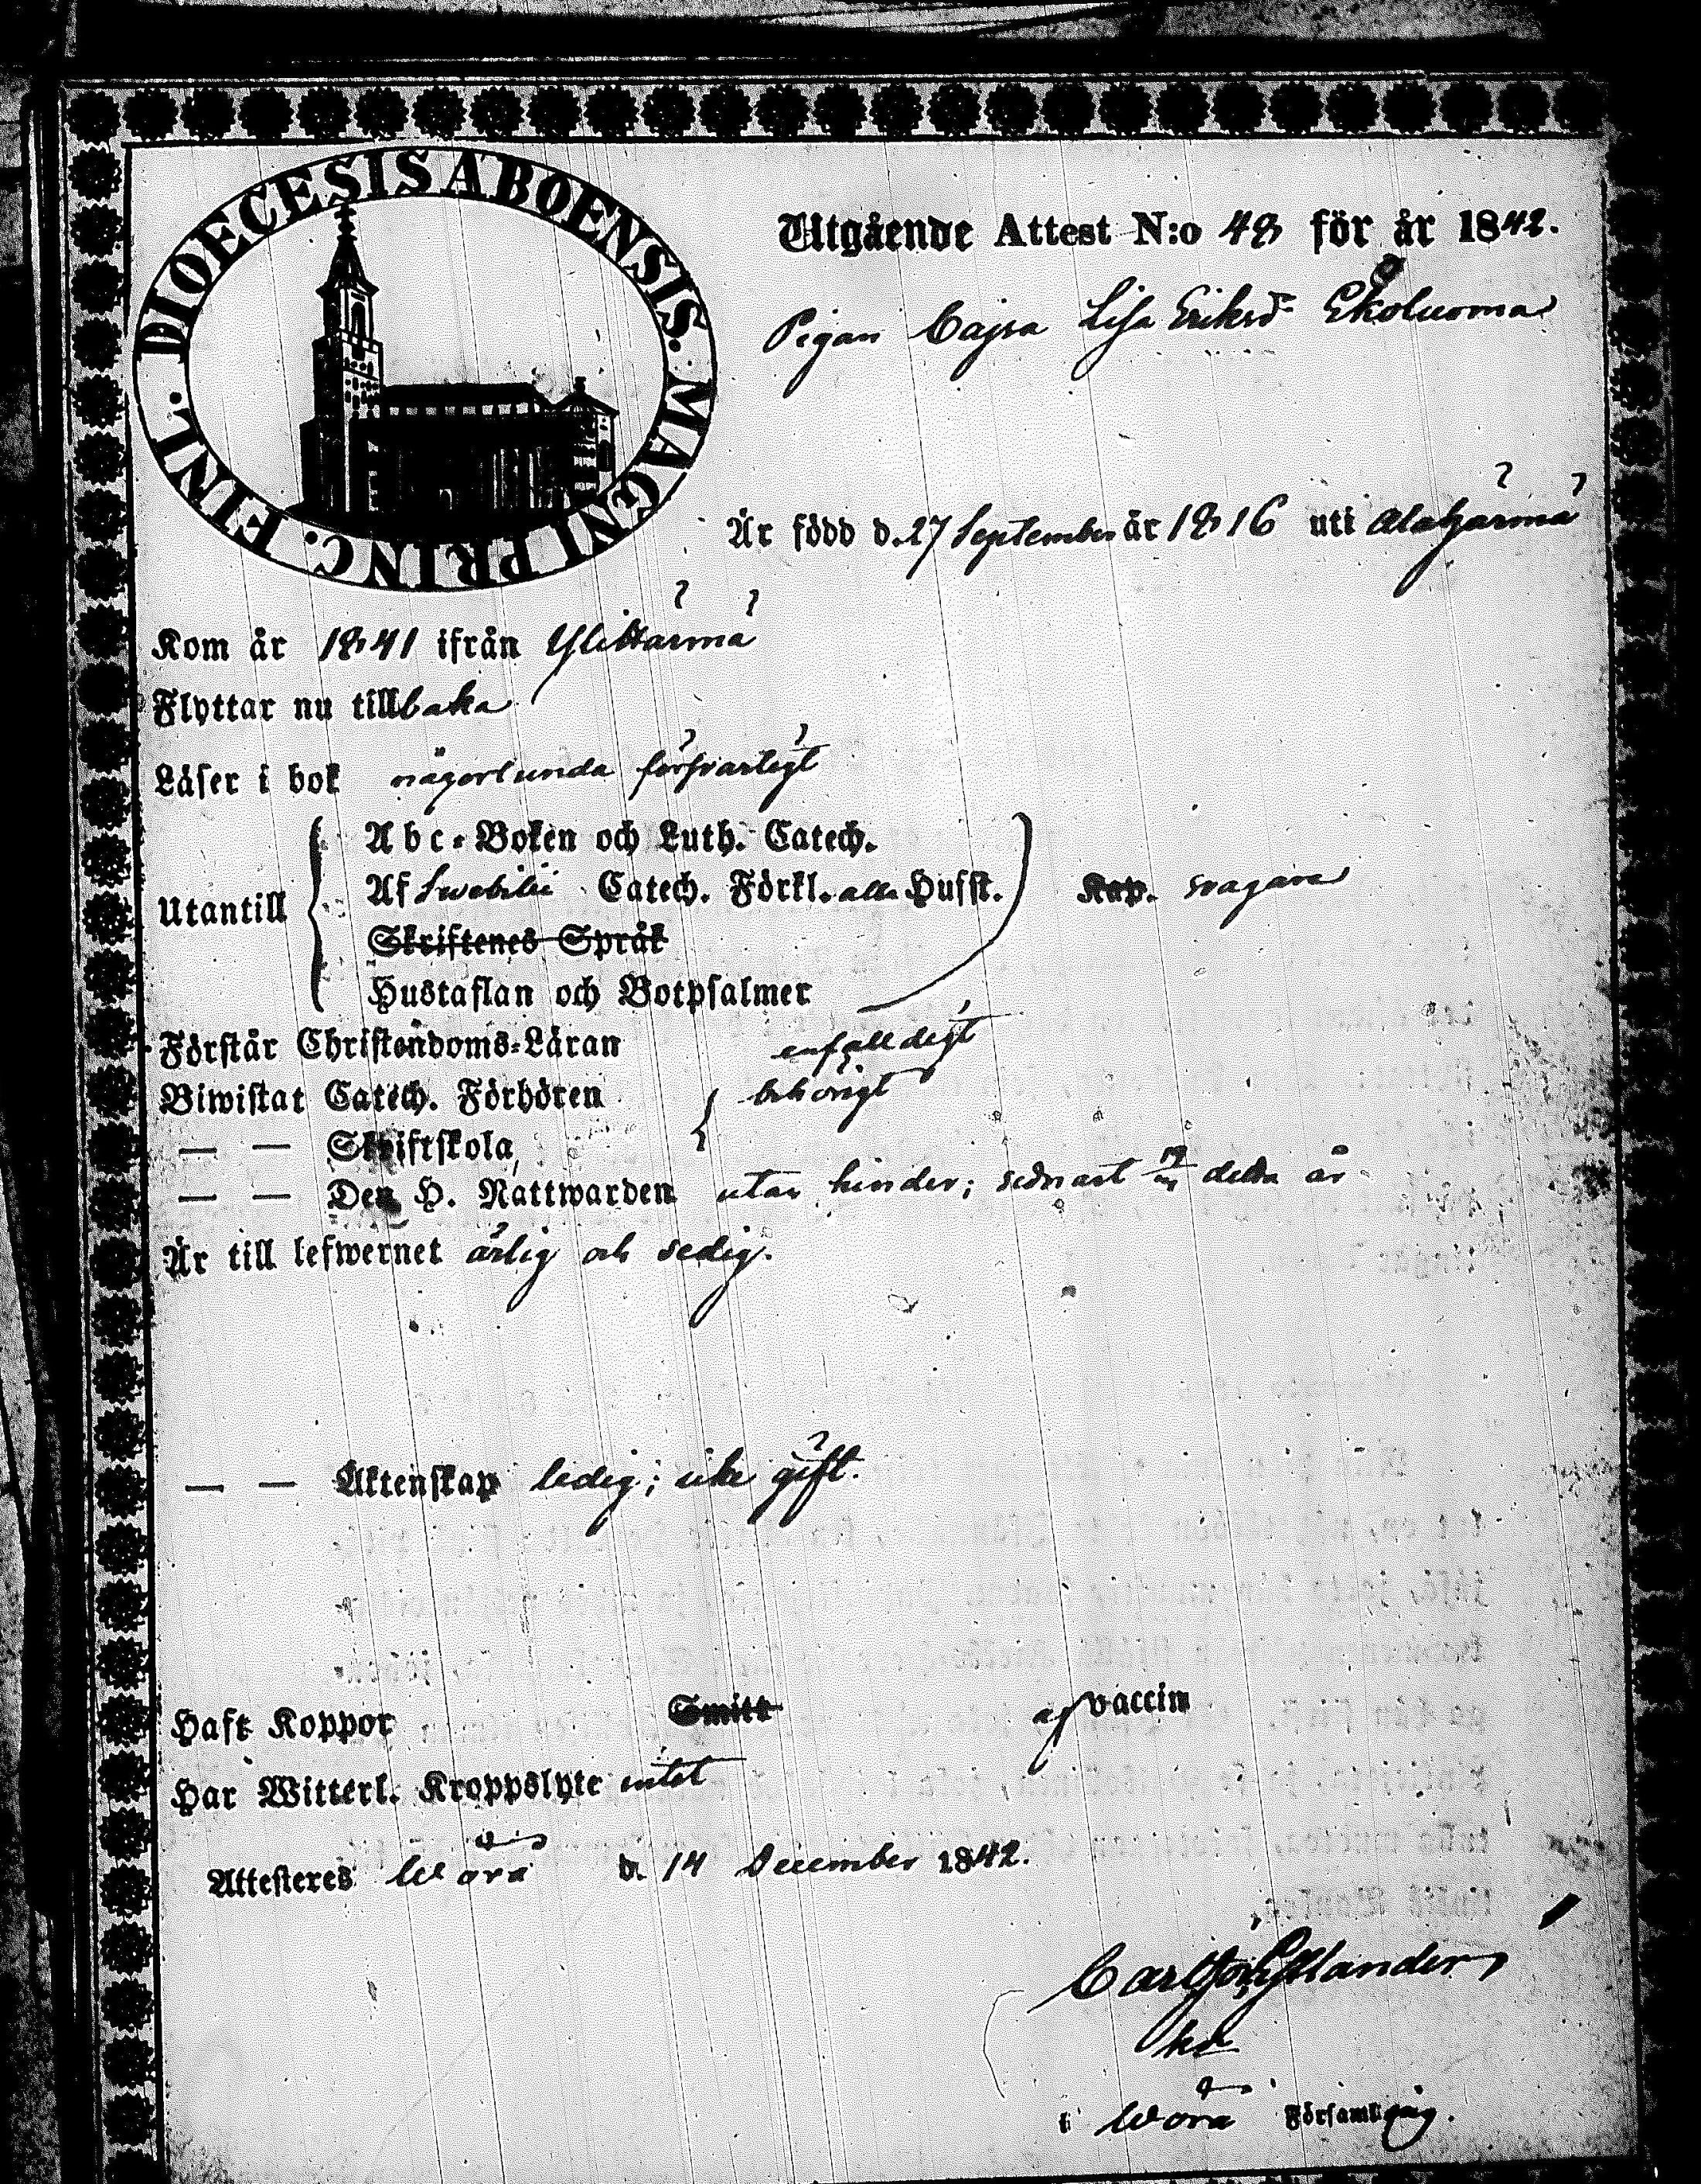 DIOECESIS ABOENSIS. MAGNI PRINC. FINL.
Utgående Attest N:o 48 för år 1842.
Pigan Cajsa Lisa Eriksd:r Ekoluoma
Är född d. 27 September år 1816 uti Alahärmä
Kom år 1841 ifrån Ylihärmä
Flyttar nu tillbaka
Läser i bok någorlunda försvarligt
Abc-Boken och Luth. Catech.
Utantill Af Swebilii Catech. Förkl. alla Hufst. Kap. svagare
Skriftenes Språk
Hustaflan och Botpsalmer
Förstår Christendoms-Läran enfalldigt
Biwistat Catech. Förhören behörigt
— — Skriftskola
— — Den H. Nattwarden utan hinder; sednast detta år
Är till lefwernet ärlig och sedig.
— — Äktenskap ledig; icke gift.
Haft Koppor Smitt af vaccin
Har Witterl. Kroppslyte intet
Attesteres Wörå d. 14 December 1842.
Carl
i Wörå Församling.